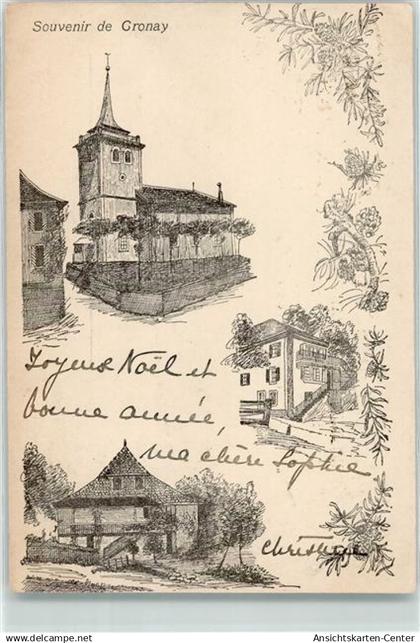 Souvenir de Gronay
Joyeux Noël et
bonne année,
ma chère Sophie
Christine
www.Ansichtskarten-Center.de
© Ansichtskarten-Center